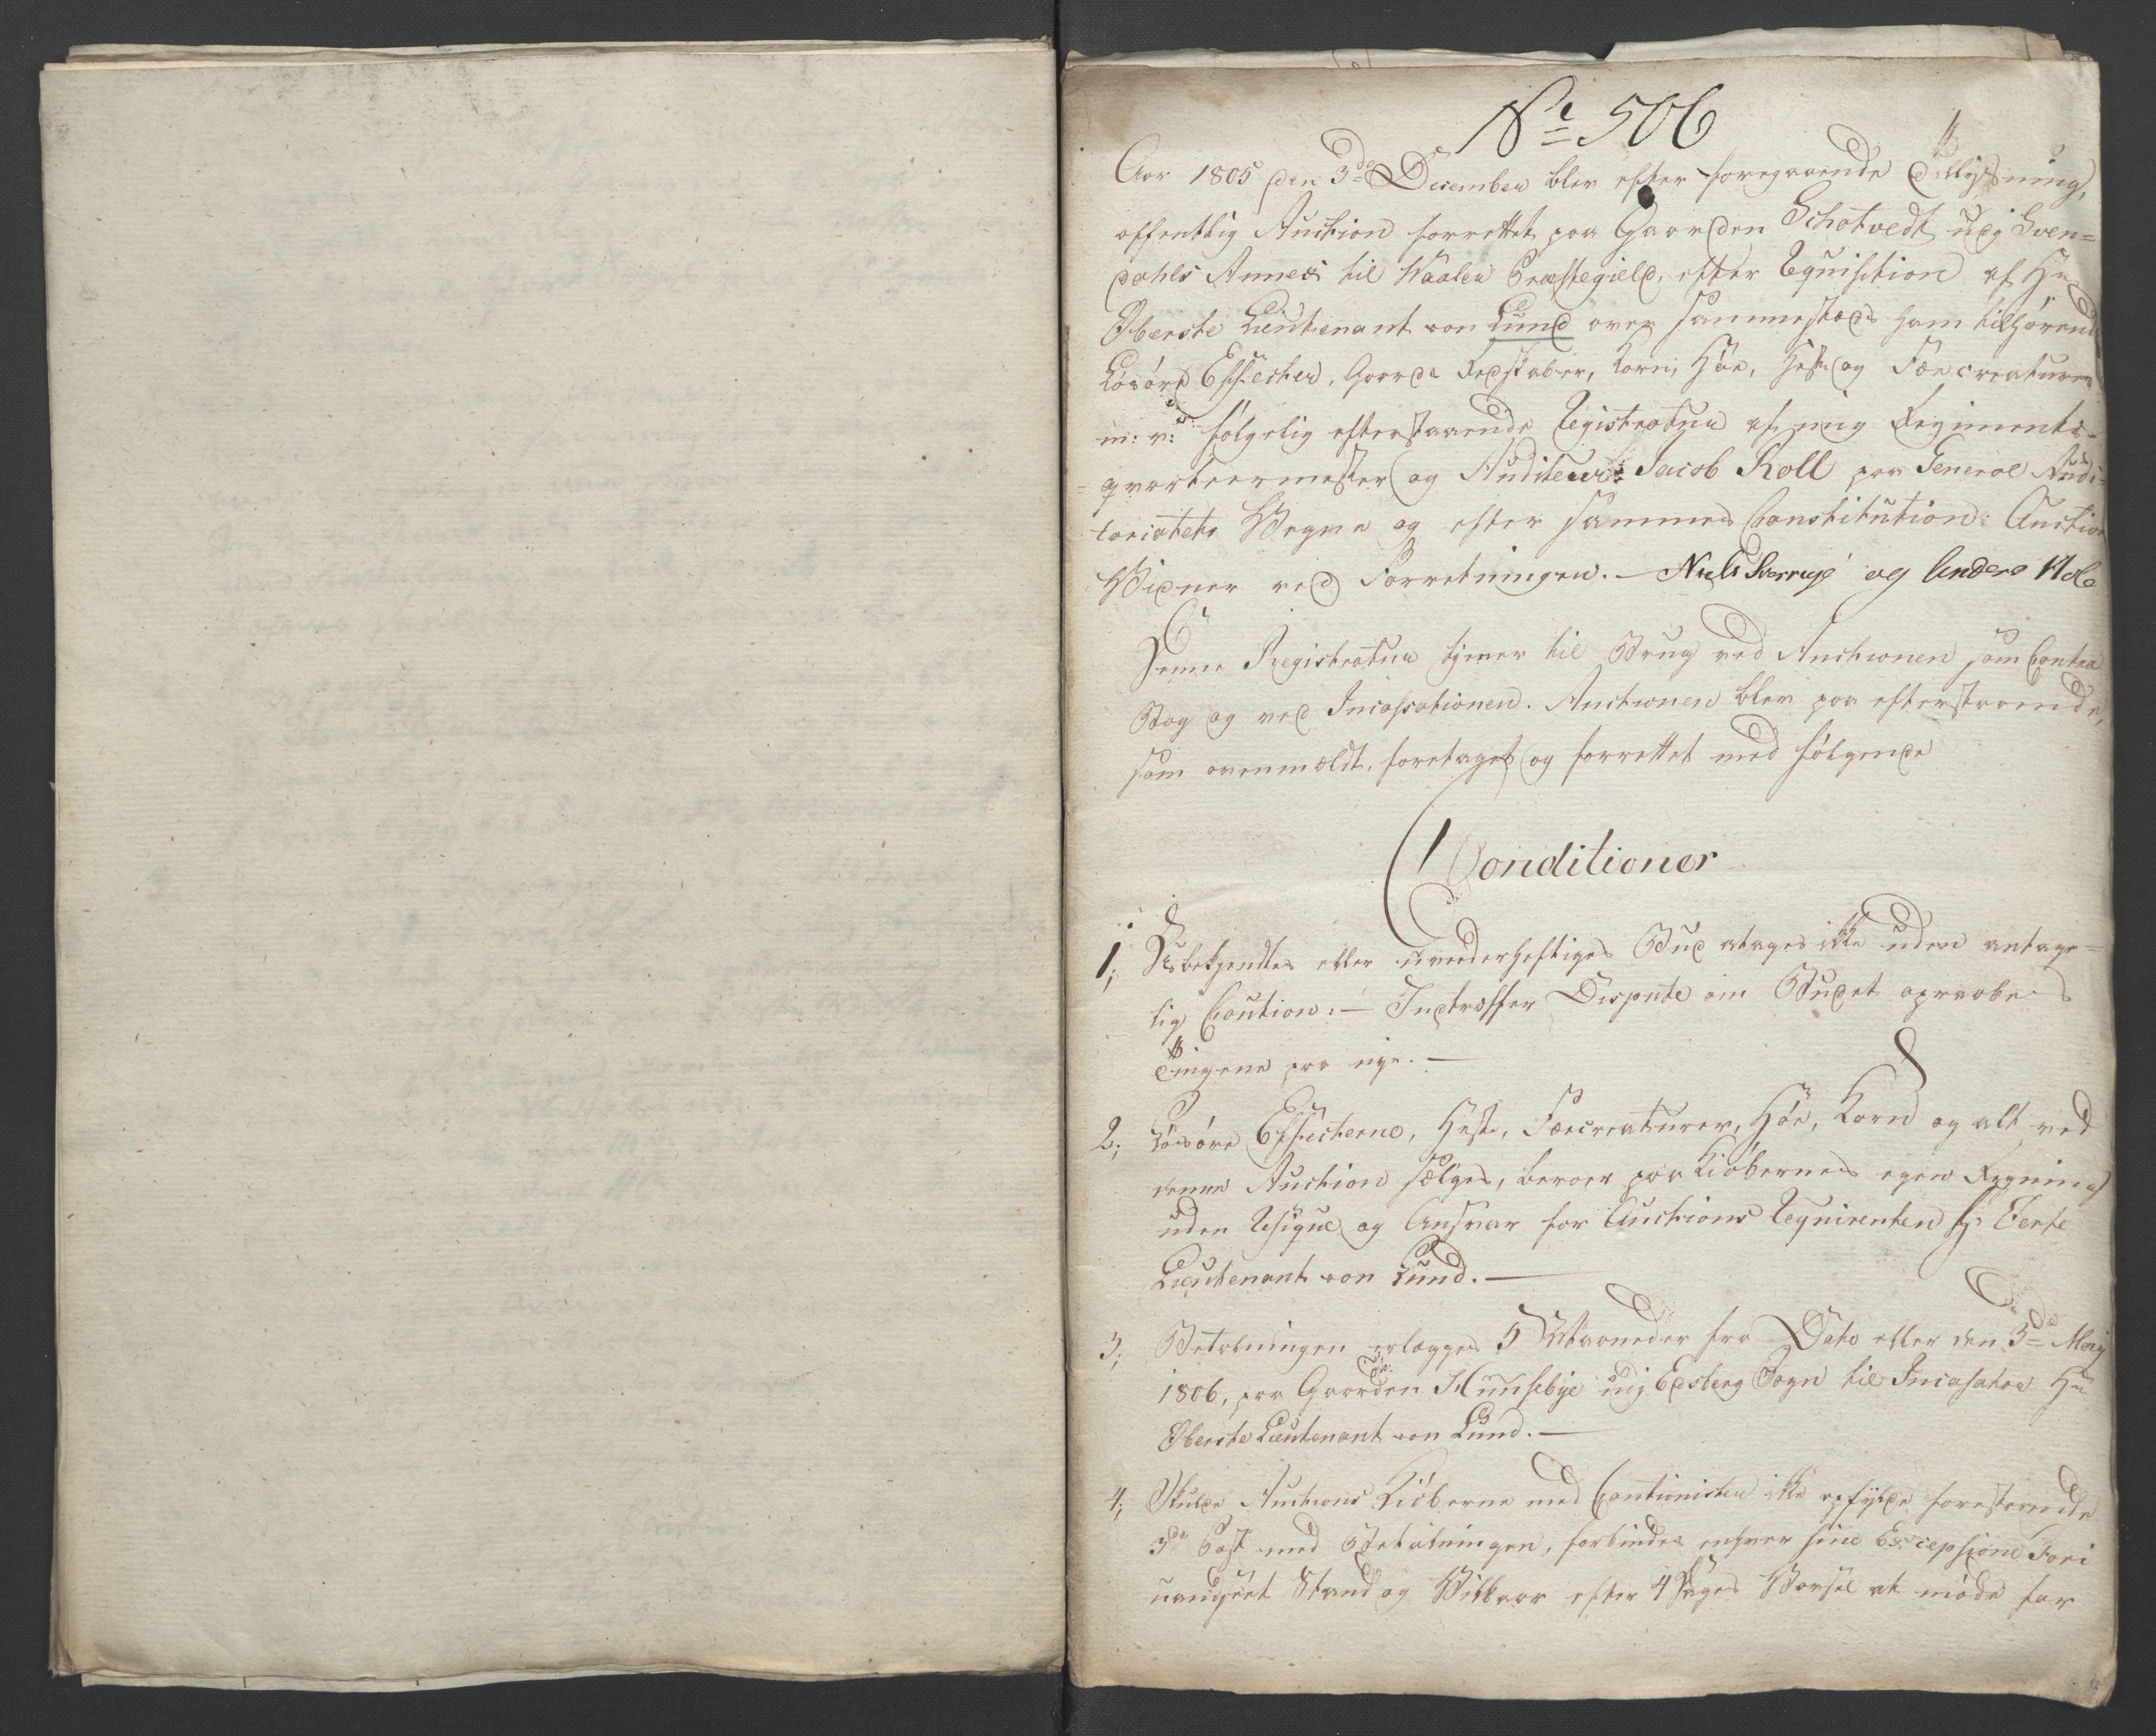 No 506
Aar 1805 den 3de December blev efter foregaaende Tillysning,
offentlig Auction forrettet paa Gaarden Schotvedt udj Sven=
dahls Annex til Waaler Præstegield, efter Requisition af Hr
Oberste Lieutenant von Lund over sammesteds ham tilhørende
Løsøre Effecter, Gaards Redskaber, Korn, Höe, Heste og Fæe creaturer
m: v: følgelig efterstaaende Registratur af mig Regiments-
qvarteermester og Auditeur Jacob Koll paa General Audi=
toriatets Wegne og efter sammes Constitution: Auction
Widner ved Forretningen. — Niels Sverruge og Anders
Denne Registratur tjener til Brug ved Auctionen som Contra
Bog og ved Incassationen. Auctionen blev paa efterstaaende,
som ovenmeldt, foretaget og forrettet med følgende
Conditioner
1; Ubekjendtes eller uvederheftiges Bud atages ikke uden antage=
lig Caution: — Indtræffer Dispute om Budet opraabes
Tingene paa nye. —
2; Løsøre Effecterne, Heste, Fæecreaturer, Höe, Korn og alt ved
denne Auction sælges, beroer paa Kiøbernes egen Regning
uden Risique og Ansvar for Auctions Reqvirenten Hr Oberste
Lieutenant von Lund. —
3; Betalningen erlægges 5 Maaneder fra Dato eller den 3de May
1806, paa Gaarden Huusebye udj Edsberg Sogn til Incasator Hr
Oberste Lieutenant von Lund. —
4; Skulde Auctions Kiøberne med Cautionister ikke opfylde forestaaende
3de Post med Betalningen, forbindes enhver sine Exceptione Fori
uanseet Stand og Vilkaar efter 4 Dages Varsel at møde for